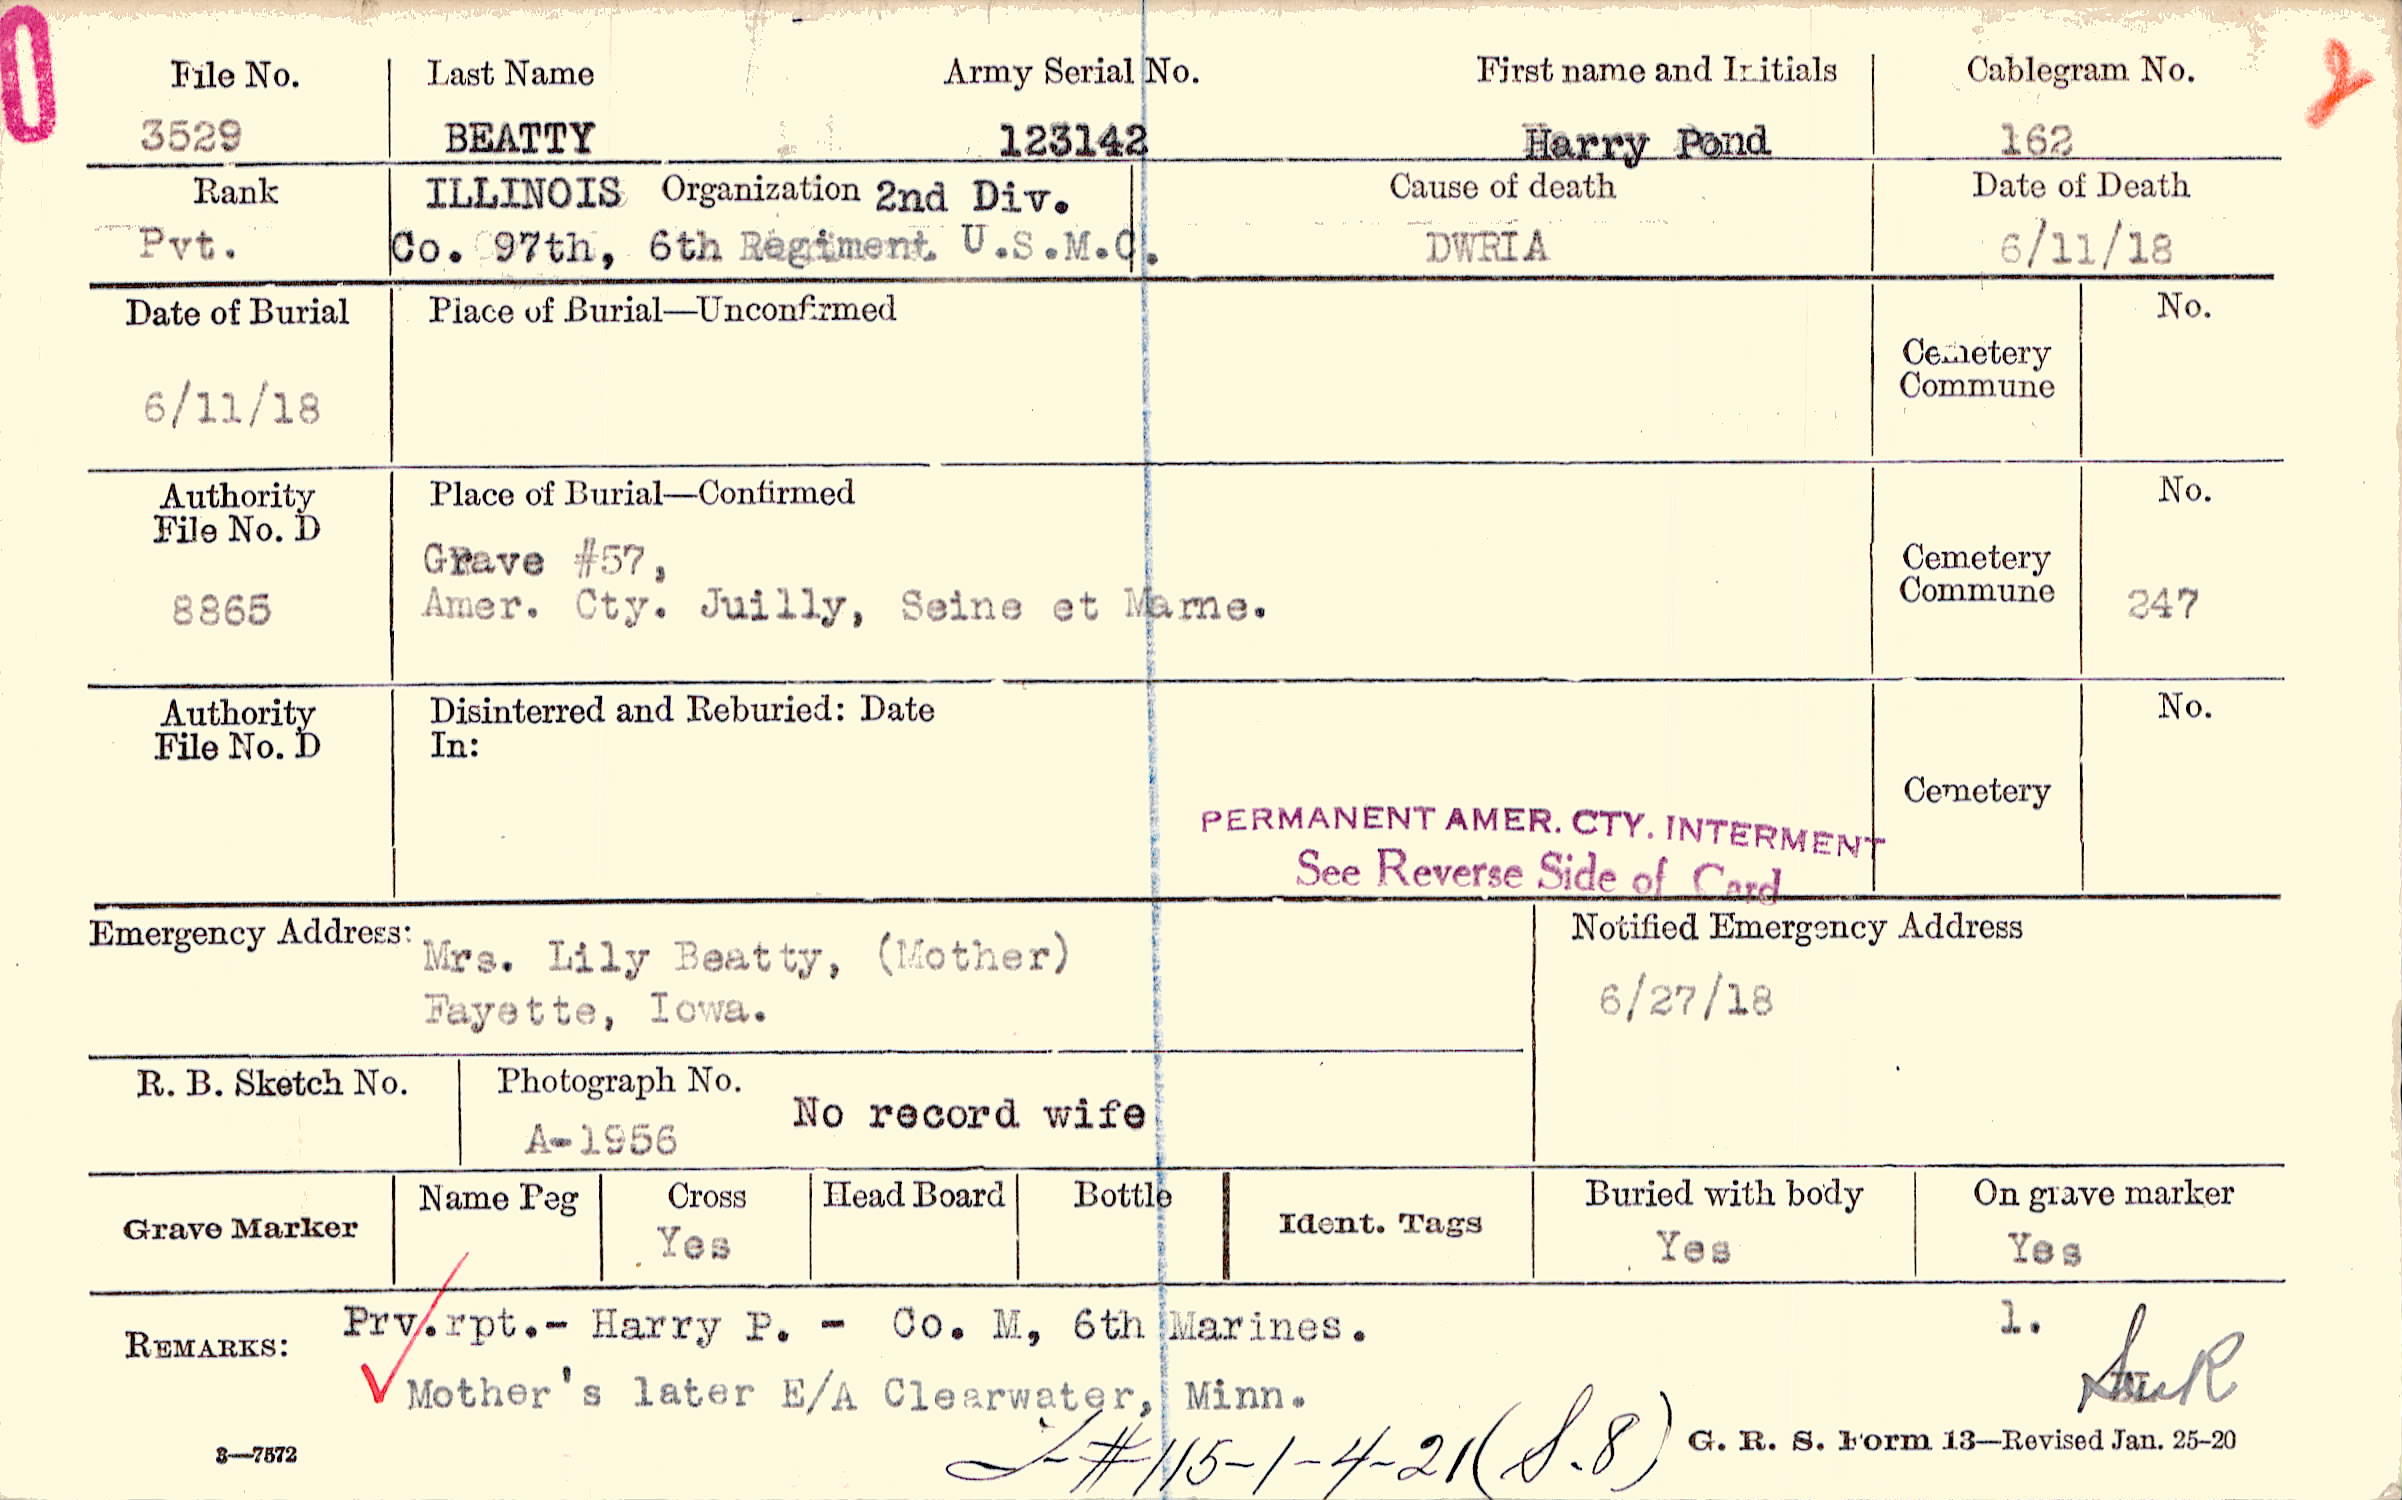 File No. Last Name Army Serial No. First name and Initials Cablegram No.
3529 BEATTY 123142 Harry Pond 162
Rank ILLINOIS Organization 2nd Div. Cause of death Date of Death
Pvt. Co. 97th, 6th Regiment U.S.M.C. DWRIA 6/11/18
Date of Burial Place of Burial—Unconfirmed No.
Cemetery
Commune
6/11/18
Authority Place of Burial—Confirmed No.
File No. D
Grave #57, Cemetery
8865 Amer. Cty. Juilly, Seine et Marne. Commune 247
Authority Disinterred and Reburied: Date No.
File No. D In:
Cemetery
PERMANENT AMER. CTY. INTERMENT
See Reverse Side of Card
Emergency Address: Notified Emergency Address
Mrs. Lily Beatty, (Mother)
Fayette, Iowa. 6/27/18
R. B. Sketch No. Photograph No.
No record wife
A-1956
Name Peg Cross Head Board Bottle Buried with body On grave marker
Grave Marker Ident. Tags
Yes Yes Yes
REMARKS: Prv.rpt.- Harry P. - Co. M, 6th Marines. 1.
Mother's later E/A Clearwater, Minn.
#115-1-4-21(S.8)
3—7572 G. R. S. Form 13—Revised Jan. 25-20